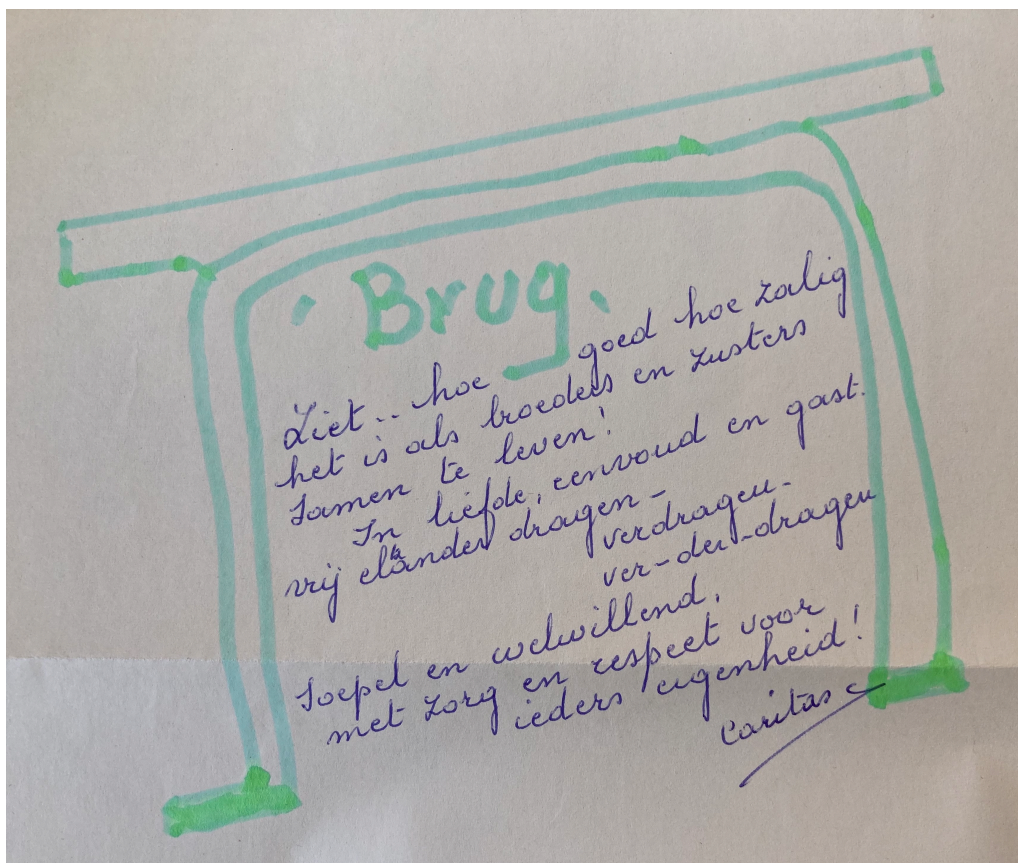 Brug
Ziet .. hoe goed hoe zalig
het is als broeders en zusters
samen te leven!
In liefde, eenvoud en gast.
vrij elkander dragen -
verdragen -
ver-der-dragen
Soepel en welwillend,
met zorg en respect voor
ieders eigenheid!
Caritas